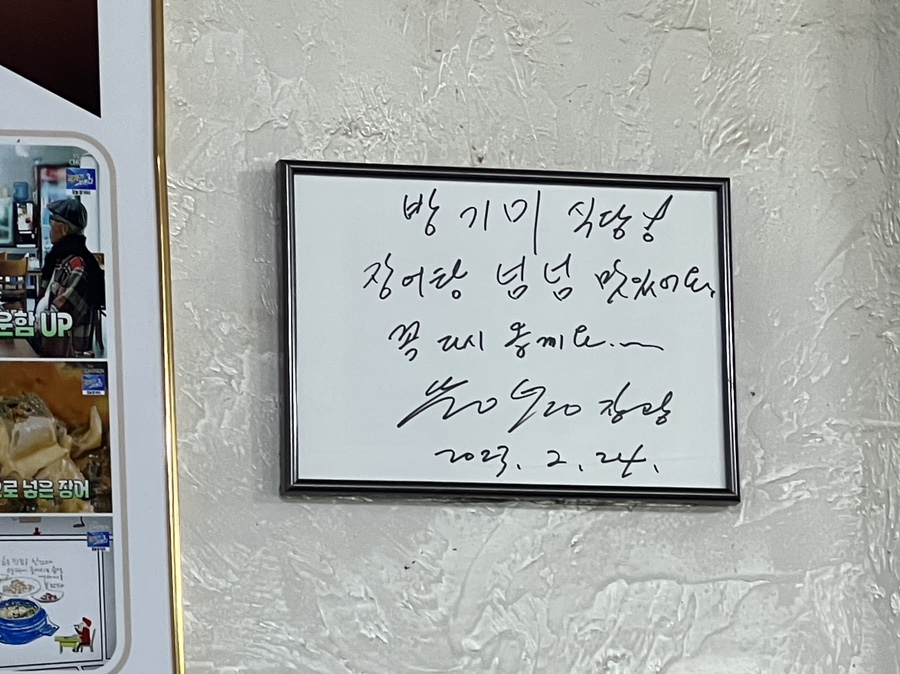 운함 UP
으로 넣은 장어
방기미 식당님
장어탕 넘넘 맛있어요.
꼭 다시 올께요.~
장광
2023. 2. 24.